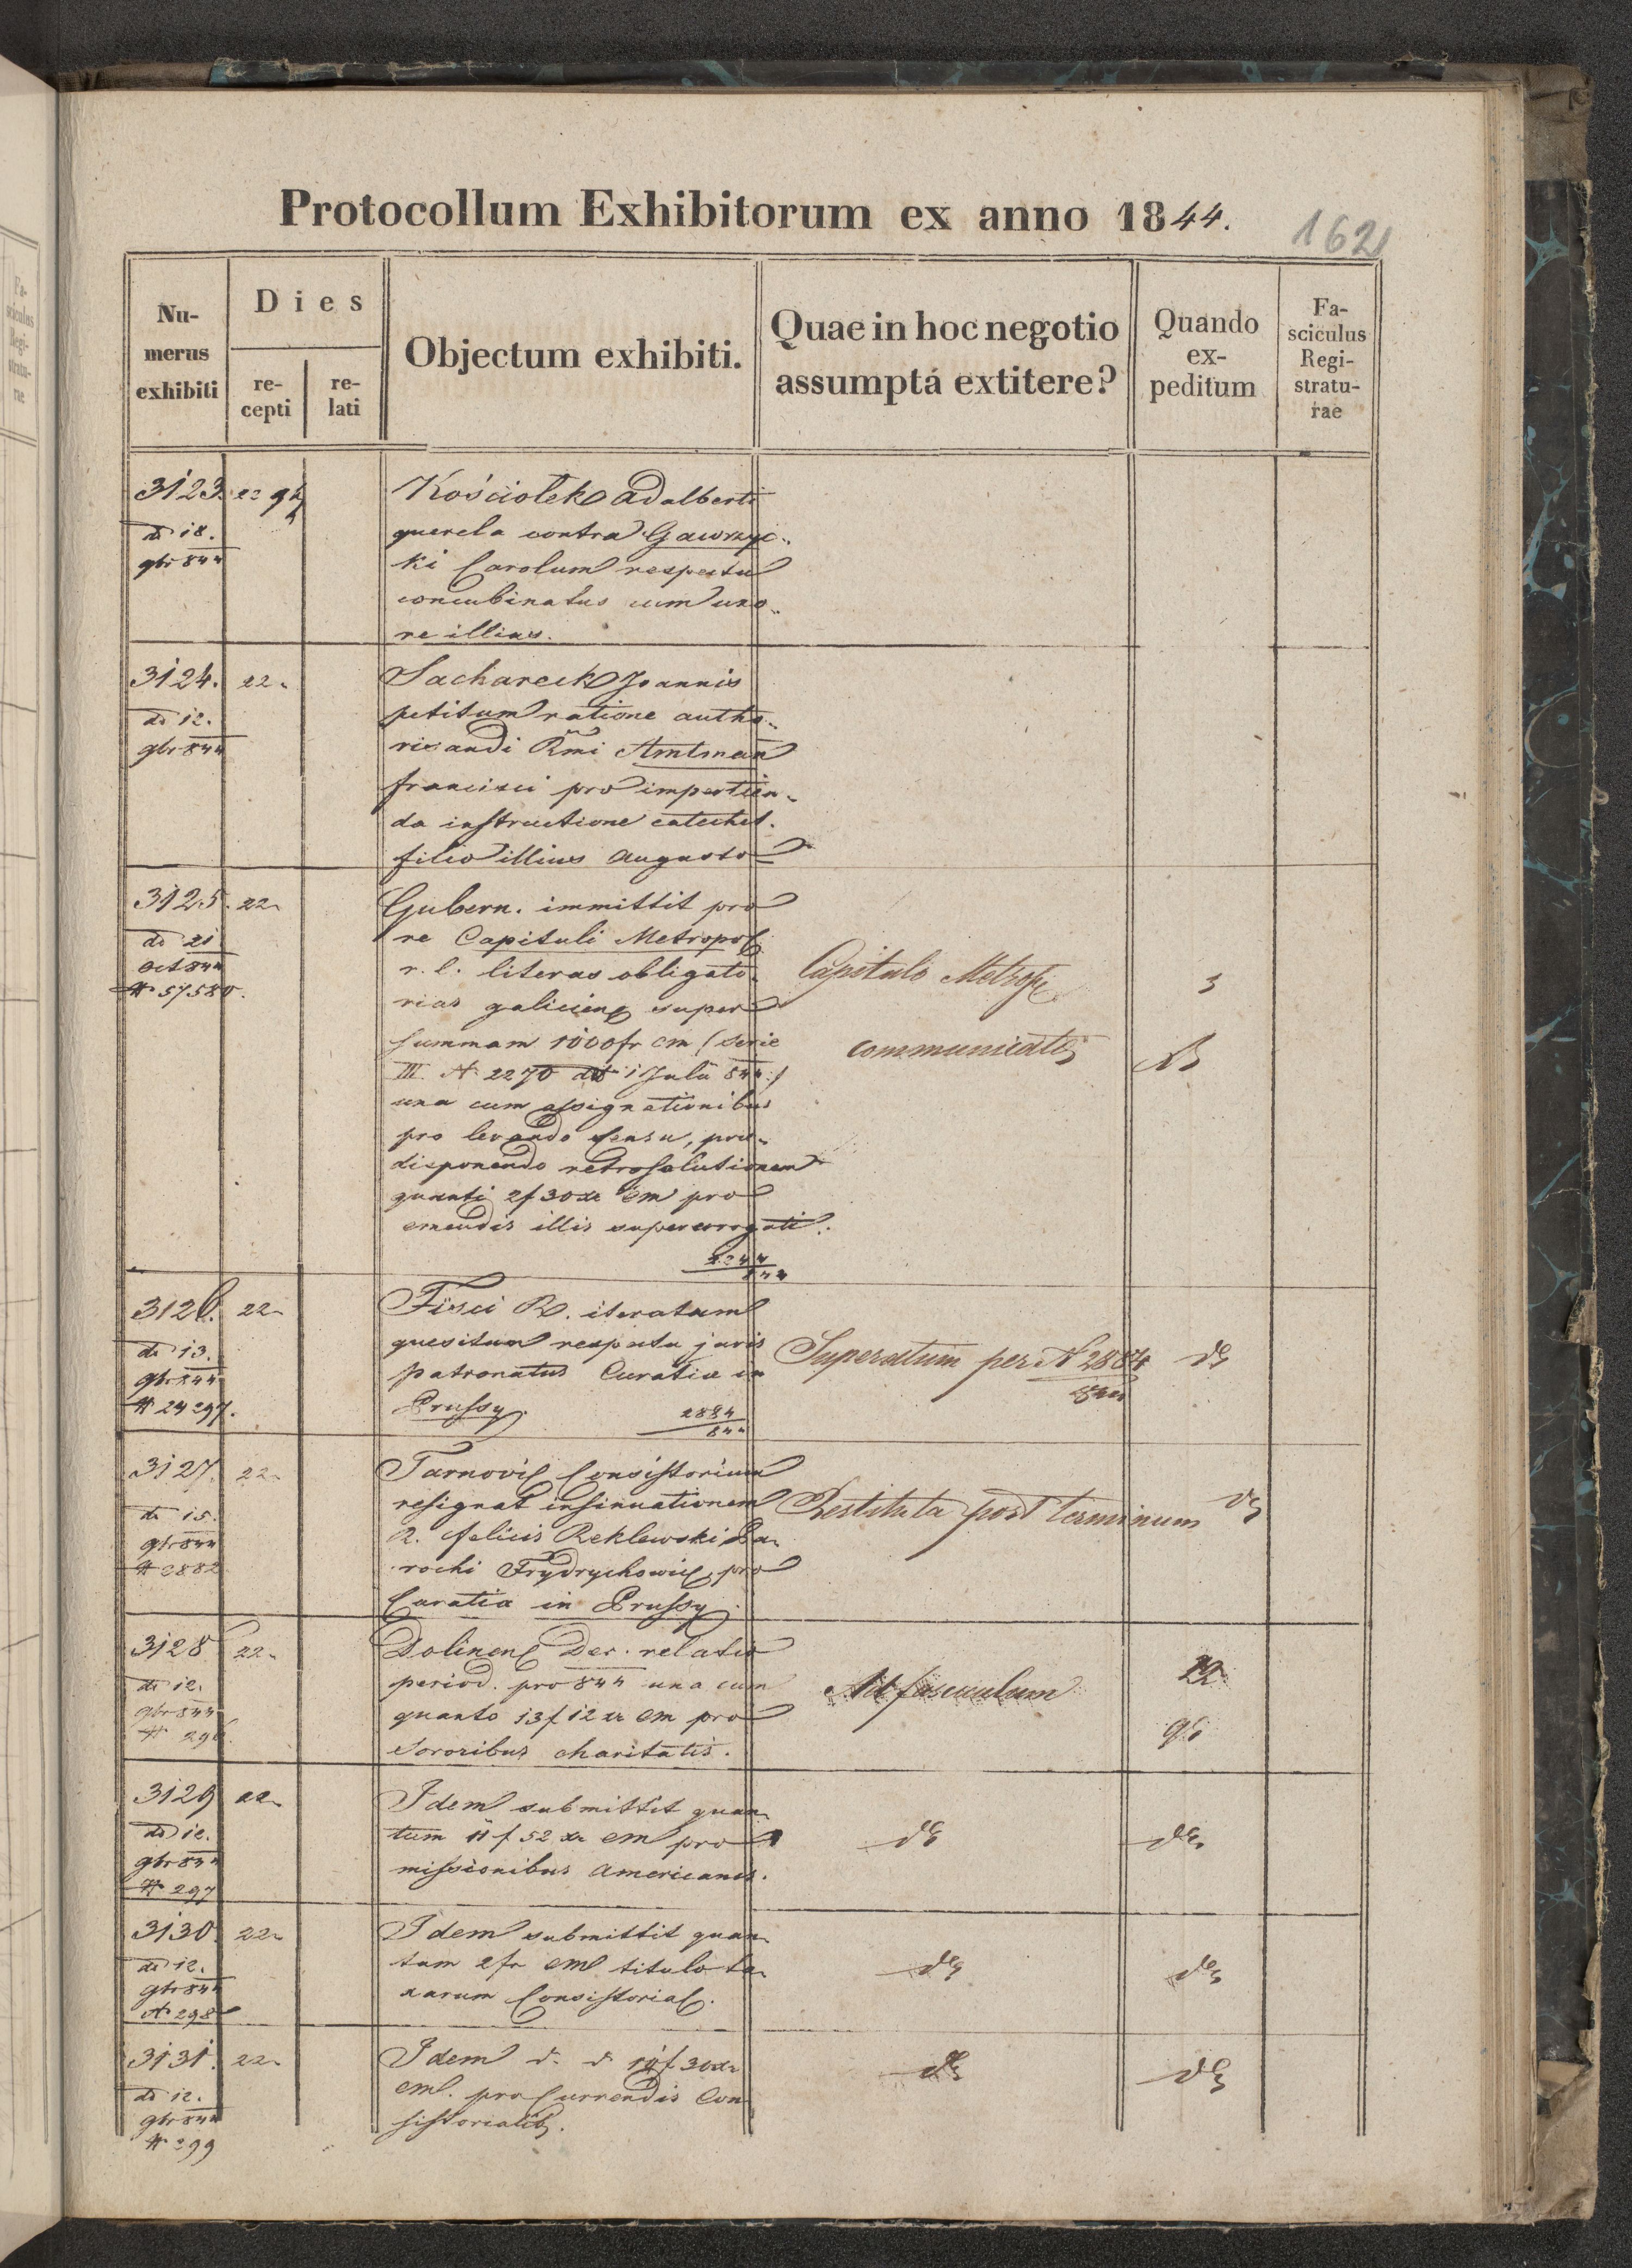 Protocollum Exhibitorum ex anno 1844.
162
Numerus exhibiti
Dies
recepti
relati
Objectum exhibiti.
Quae in hoc negotio assumptá extitere?
Quando expeditum
Fasciculus Registraturae
3123. 22 9b
dо 18.
9br 844
Kościołek Adalberti
querela contra Gawrzyc-
ki Carolum respectu
concubinatus cum uxo-
re illius.
3124. 22
do 12.
9br 844
Sachareck Joannis
petitum ratione autho-
risandi Rmi Amtman
Francisci pro impertien-
da instructione catechet.
filio illius Augusto
3125. 22
do 21
Oct 844
N 57580.
Gubern. immittit pro
re Capituli Metropol
r. l. literas obligato-
rias galicien super
summam 1000 fr cm (serie
III N 2270 do 1 Julii 844)
una cum assignationibus
pro levando censu, prae-
disponendo retrosolutionem
quanti 2f 30 xr cm pro
emendis illis supererogati.
844
Capitulo Metrop
communicat
3126. 22
do 13.
9br 844
N 24297.
Fisci R. iteratum
quesitum respectu juris
patronatus Curatiae in
Prussy. 2884
844
Superatum per N 2884
844
do
3127. 22
do 15.
9br 844
N 2882
Tarnovi Consistorium
resignat insinuationem
R. Felicis Reklewski Pa-
rochi Frydrychowic, pro
Curatia in Prussy.
Restituta post terminum
do
3128 22
do 12.
9br 844
N 296.
Dolinen Dec. relatio
period. pro 844 una cum
quanto 13f 12 xr cm pro
Sororibus charitatis.
Ad fasciculum
22
9b
3129 22
do 12.
9br 844
N 297
Idem submittit quan-
tum 11 f 52 xr cm pro
missionibus Americanis.
do
do
3130. 22
do 12.
9br 844
N 298
Idem submittit quan-
tum 2fr cm titulo ta-
xarum Consistorial.
do
do
3131. 22
do 12.
9br 844
N 299
Idem d. d 10f 30 xr
cm. pro Currendis Con
sistorialib.
do
do